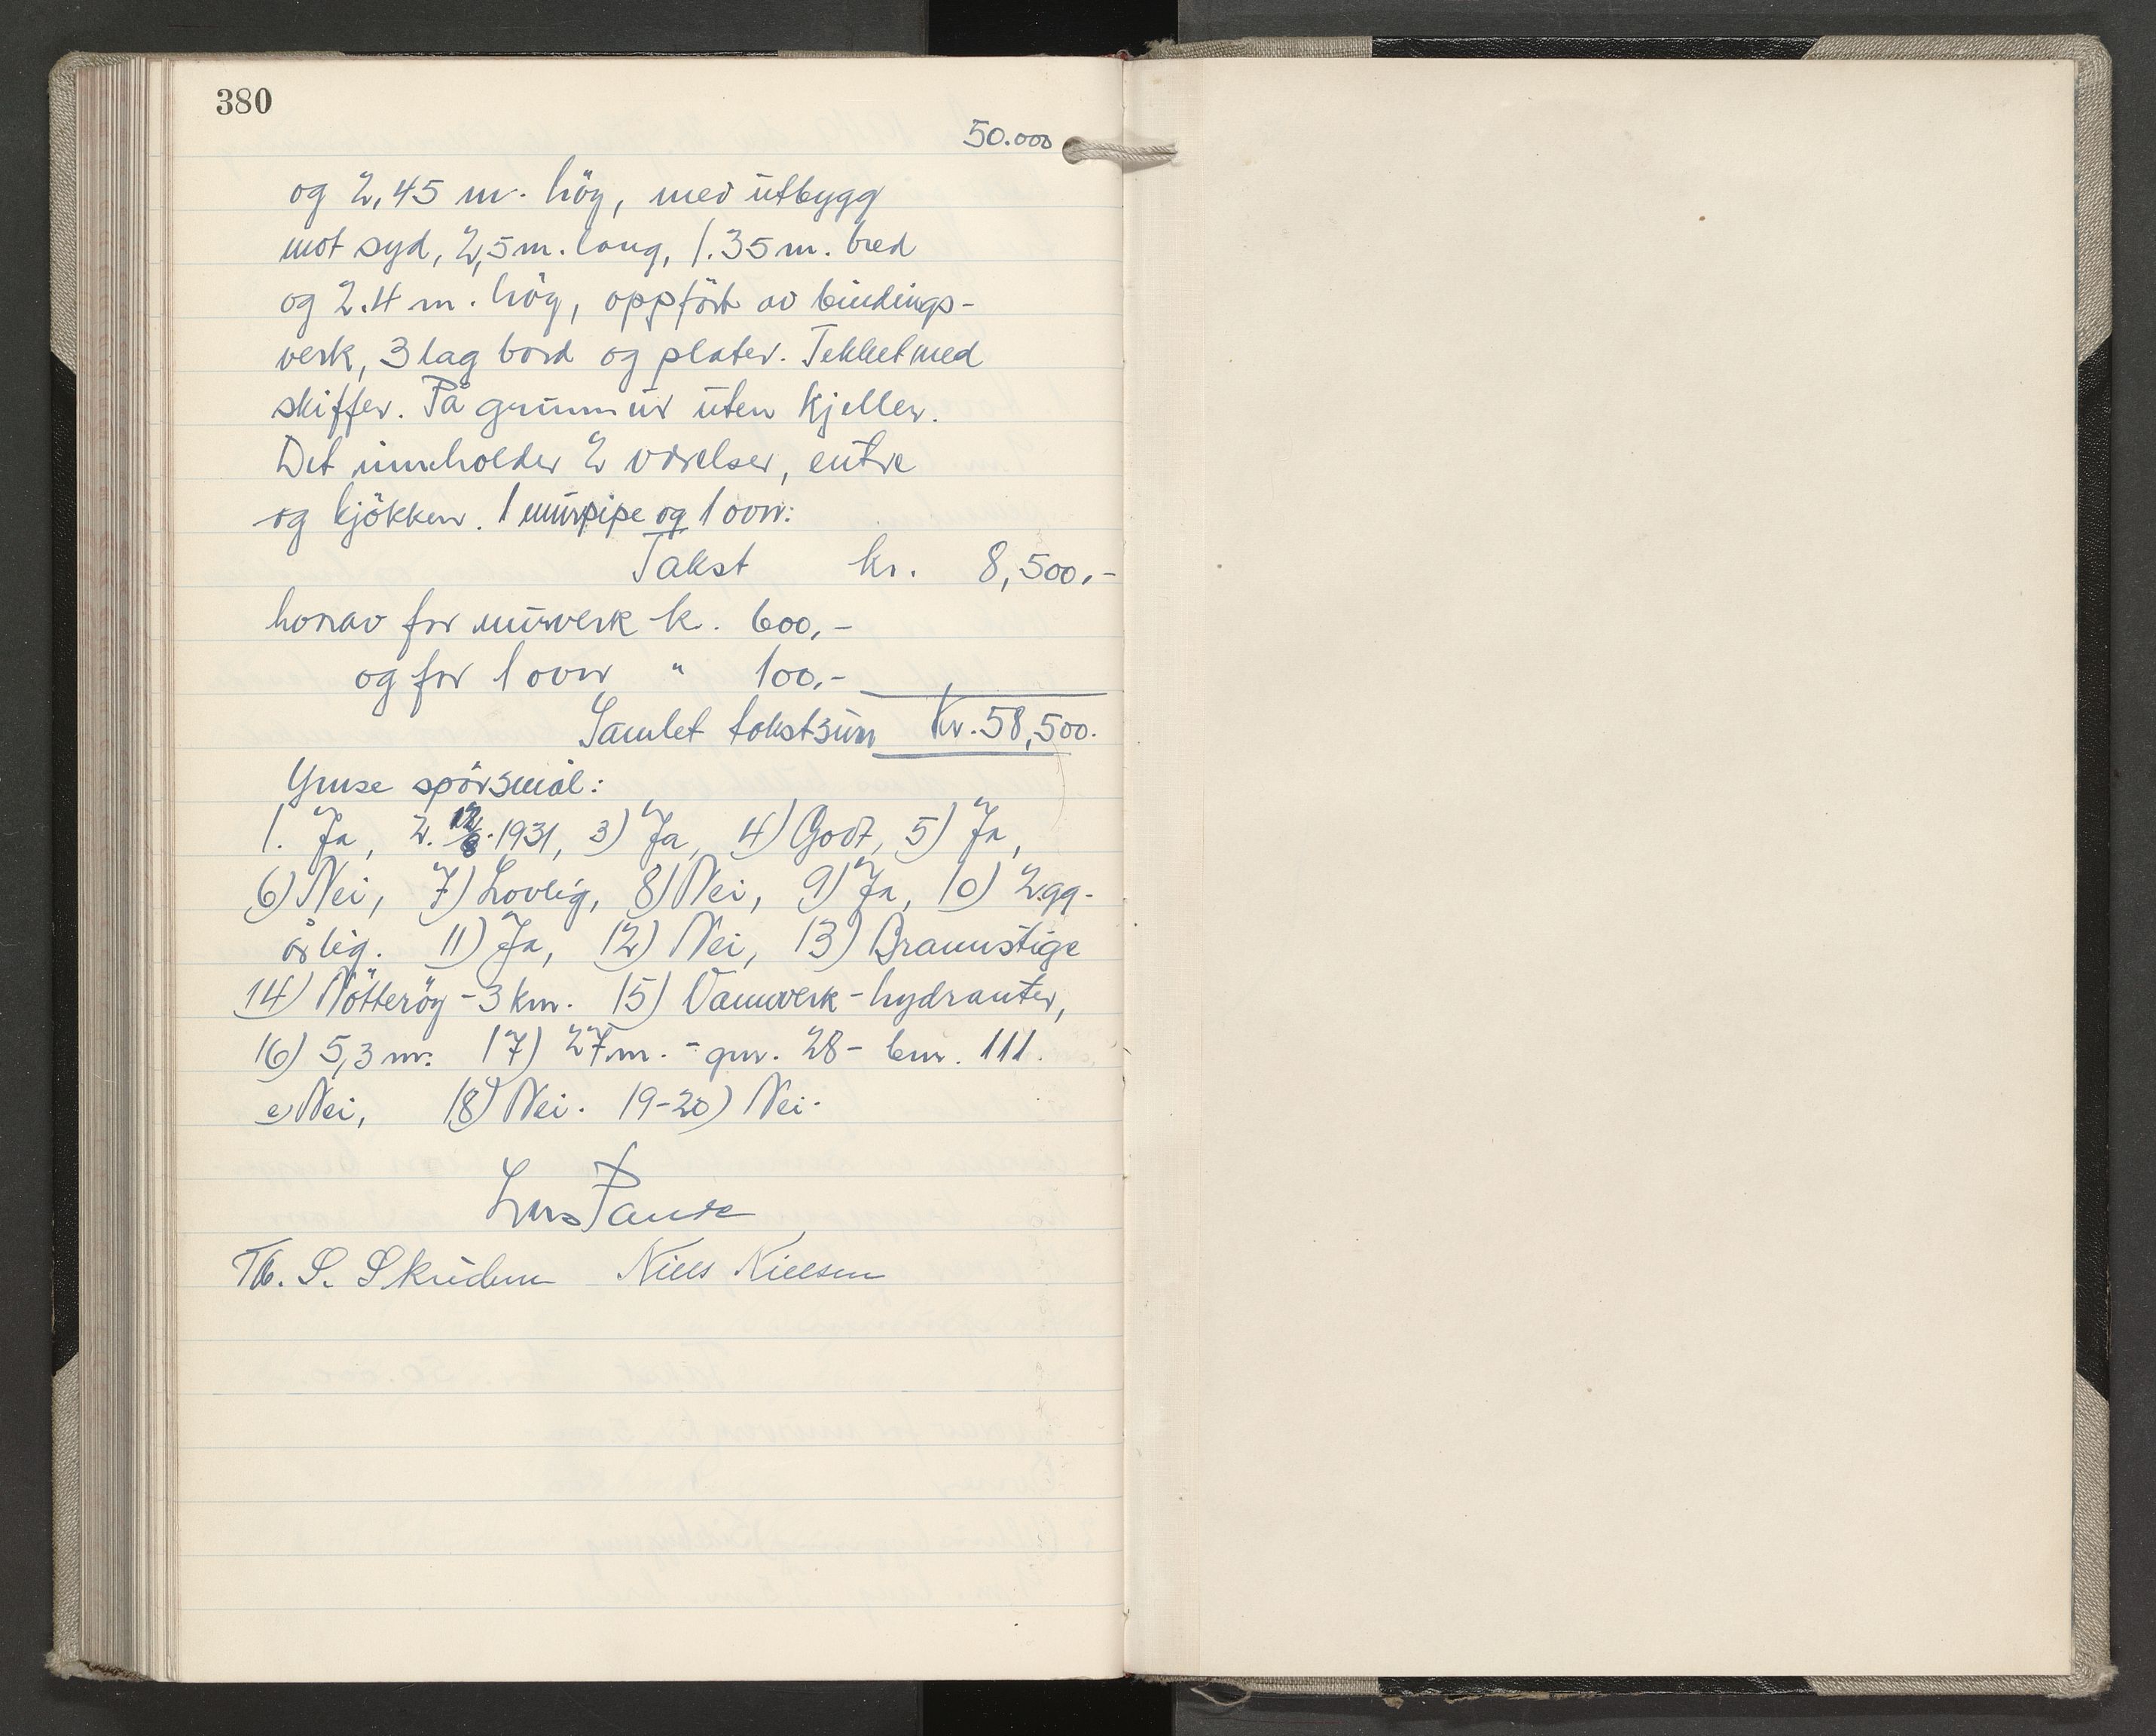 380
50.000
og 2,45 m. hög, med utbygg
mot syd, 2,5 m. lang, 1.35 m. bred
og 2.4 m. hög, oppfört av bindings-
verk, 3 lag bord og plater. Tekket med
skiffer. På grunnmur uten kjeller.
Det inneholder 2 værelser, entre
og kjökken. 1 murpipe og 1 ovn:
Takst kr. 8,500.-
horav for murverk k. 600,-
og for 1 ovn " 100,-
Samlet takstsum Kr. 58,500.
Ymse spörsmål:
1. Ja, 2. 12/8.1931, 3) Ja, 4) Godt, 5) Ja,
6) Nei, 7) Lovlig, 8) Nei, 9) Ja, 10) 2 gg-
årlig. 11) Ja, 12) Nei, 13) Brannstige
14) Nötteröy - 3 km. 15) Vannverk - hydranter,
16) 5,3 m. 17) 27 m. - gnr. 28 - bnr. 111.
e) Nei, 18) Nei. 19-20) Nei.
Lars Pause
Th. S. Niels Nielsen